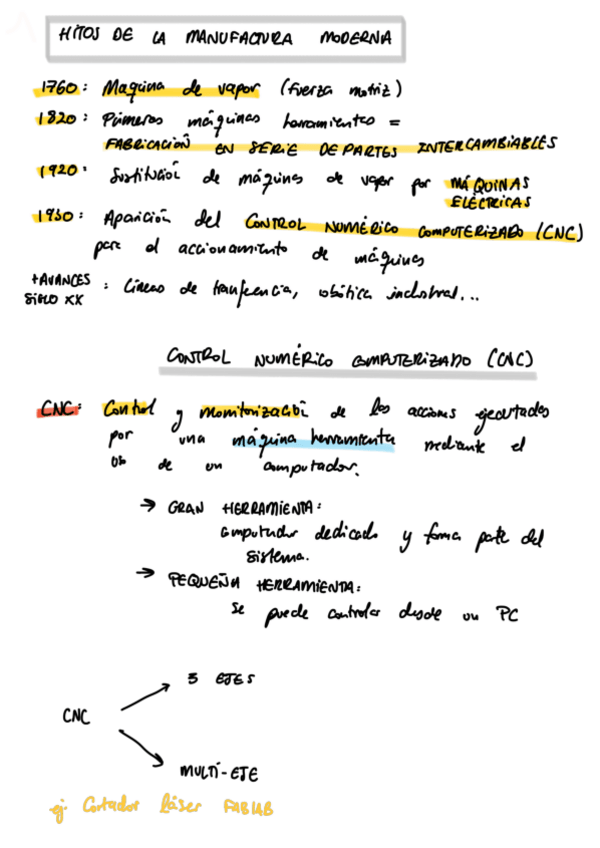 HITOS DE LA MANUFACTURA MODERNA
1760: Maquina de vapor (fuerza motriz)
1820: Primeras máquinas herramientas =
FABRICACIÓN EN SERIE DE PARTES INTERCAMBIABLES
1920: Sustitució de máquinas de vapor por MÁQUINAS
ELÉCTRICAS
1930: Aparición del CONTROL NUMÉRICO COMPUTERIZADO (CNC)
para el accionamiento de máquinas
+AVANCES
SIGLO XX : Líneas de tranferencia, robótica industrial...
CONTROL NUMÉRICO COMPUTERIZADO (CNC)
CNC: Control y monitorización de las acciones ejecutadas
por una máquina herramienta mediante el
de un computador.
→ GRAN HERRAMIENTA:
computador dedicado y forma parte del
sistema.
→ PEQUEÑA HERRAMIENTA:
se puede controlar desde un PC
EJES
CNC
MULTI-EJE
ej: Cortador láser FABLAB